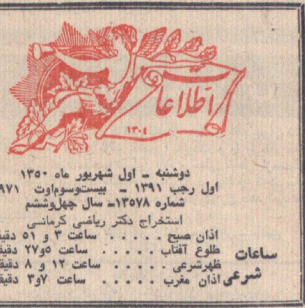 اطلاعات
۱۳۰۴
دوشنبه ـ اول شهریور ماه ۱۳۵۰
اول رجب ۱۳۹۱ ـ بیست‌وسوم‌اوت ۹۷۱
شماره ۱۳۵۷۸ـ سال چهل‌وششم
استخراج دکتر ریاضی کرمانی
ساعات شرعی
اذان صبح . . . . . ساعت ۳ و ۵۱ دقیقه
طلوع آفتاب . . . . . ساعت ۵و۲۷ دقیقه
ظهرشرعی . . . . . ساعت ۱۲ و ۸ دقیقه
اذان مغرب . . . . . ساعت ۷و۳ دقیقه